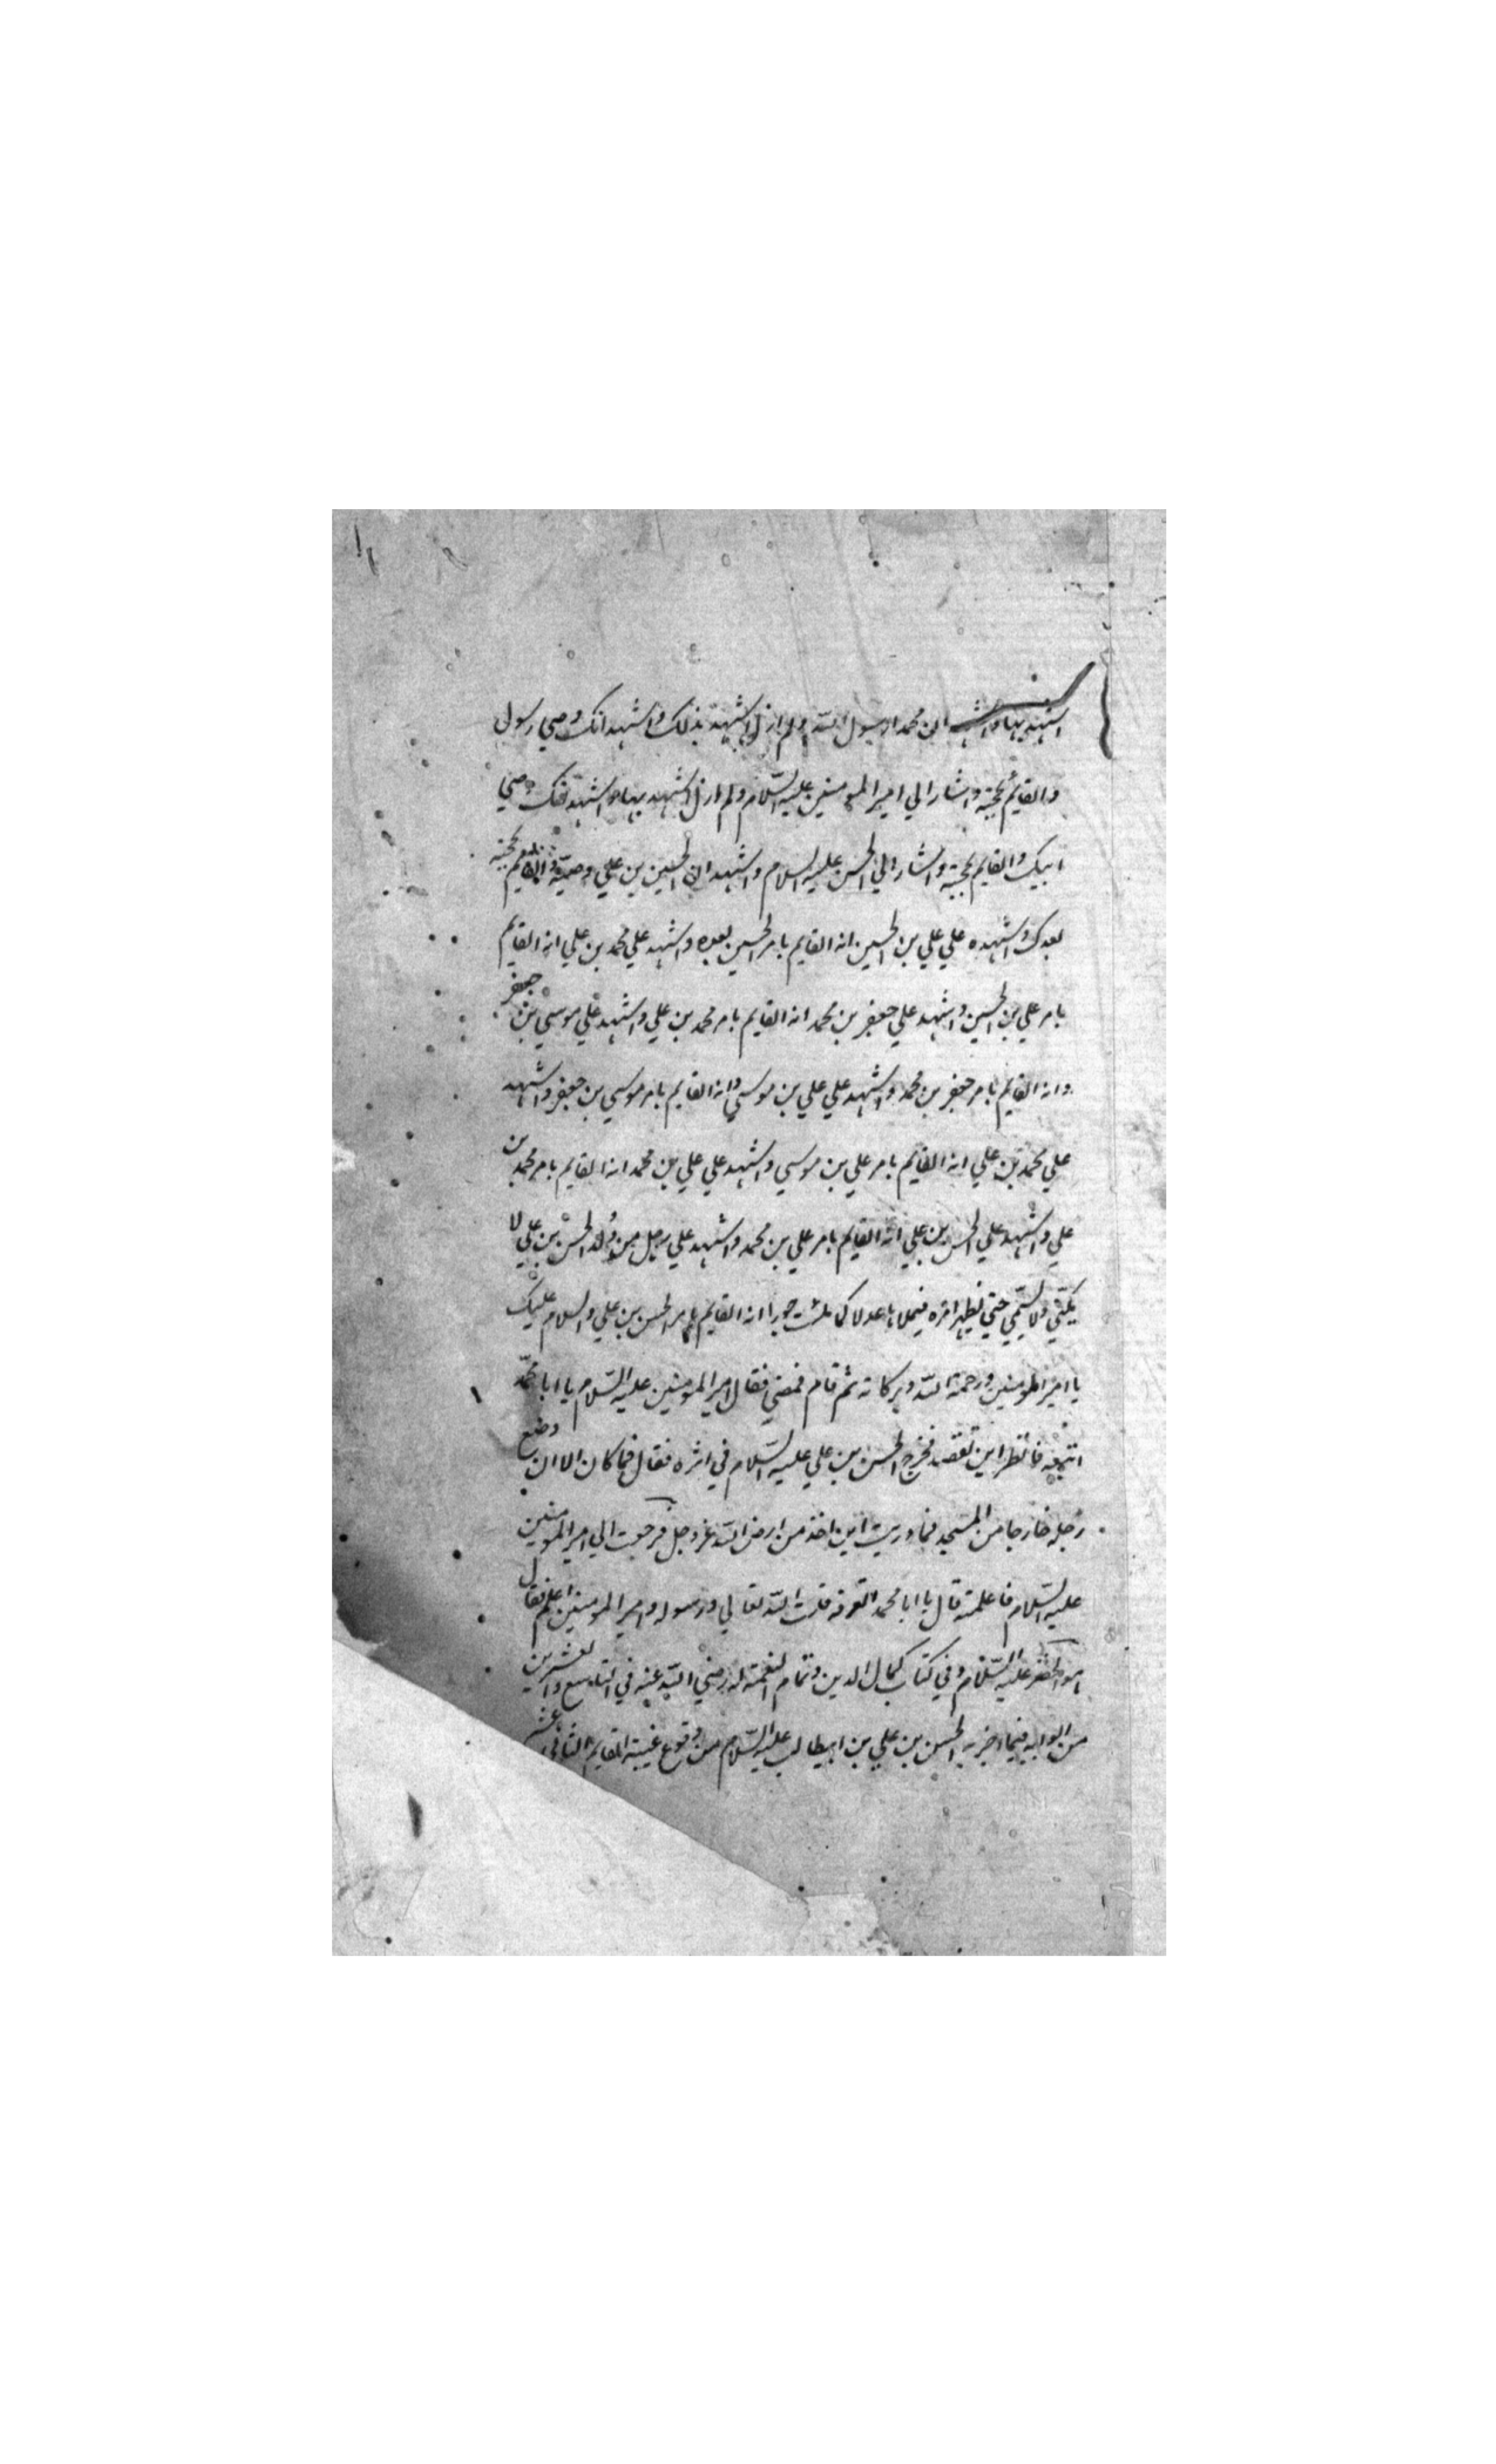 اشهد بها واشهد ان محمدا رسول الله ولم ازل اشهد بذلك واشهد انك وصي رسول
والقايم بحجته واشار الي امير المومنين عليه السلام ولم ازل اشهد بها واشهد انك وصي
ابيك والقايم بحجته واشار الي الحسن عليه السلام واشهد ان الحسين بن علي وصيه والقايم بحجته
بعدك واشهد علي علي بن الحسين انه القايم بامر الحسين بعده واشهد علي محمد بن علي انه القايم
بامر علي بن الحسين واشهد علي جعفر بن محمد انه القايم بامر محمد بن علي واشهد علي موسي بن جعفر
وانه القايم بامر جعفر بن محمد واشهد علي علي بن موسي وانه القايم بامر موسي بن جعفر واشهد
علي محمد بن علي انه القايم بامر علي بن موسي واشهد علي علي بن محمد انه القايم بامر محمد بن
علي واشهد علي الحسن بن علي انه القايم بامر علي بن محمد واشهد علي رجل من ولد الحسن بن علي لا
يكني ولا يسمي حتي يظهر امره فيملاها عدلا كما ملئت جورا انه القايم بامر الحسن بن علي والسلام عليك
يا امير المومنين ورحمة الله وبركاته ثم قام فمضي فقال امير المومنين عليه السلام يا ابا محمد
اتبعه فانظر اين تقصد فخرج الحسن بن علي عليه السلام في اثره فقال فما كان الا ان وضع
رجله خارجا من المسجد فما دريت اين اخذ من ارض الله عز وجل فرجعت الي امير المومنين
عليه السلام فاعلمته قال يا ابا محمد اتعرفه قلت الله تعالي ورسوله وامير المومنين اعلم فقال
هو الخضر عليه السلام وفي كتاب كمال الدين وتمام النعمة له رضي الله عنه في التاسع والعشرين
من ابوابه فيما اخبر به الحسن بن علي بن ابيطالب عليه السلام من وقوع غيبة القايم الثاني عشر